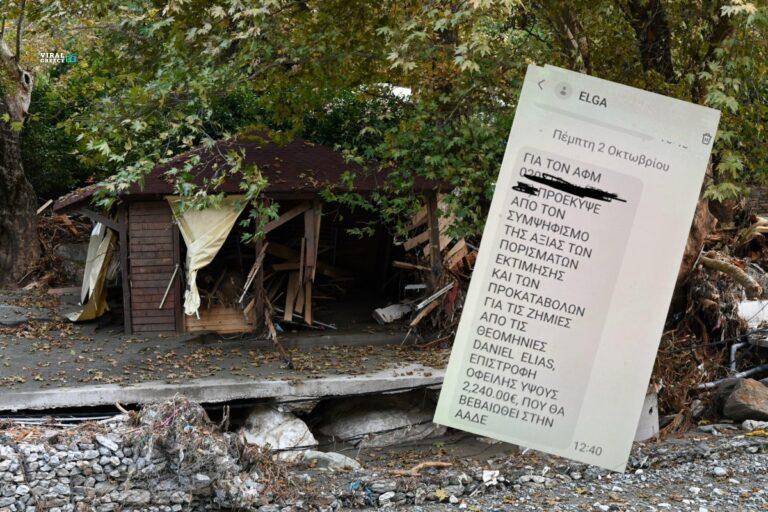 VIRAL
GREECE
ELGA
Πέμπτη 2 Οκτωβρίου
ΓΙΑ ΤΟΝ ΑΦΜ
ΠΡΟΕΚΥΨΕ
ΑΠΟ ΤΟΝ
ΣΥΜΨΗΦΙΣΜΟ
ΤΗΣ ΑΞΙΑΣ ΤΩΝ
ΠΟΡΙΣΜΑΤΩΝ
ΕΚΤΙΜΗΣΗΣ
ΚΑΙ ΤΩΝ
ΠΡΟΚΑΤΑΒΟΛΩΝ
ΓΙΑ ΤΙΣ ΖΗΜΙΕΣ
ΑΠΟ ΤΙΣ
ΘΕΟΜΗΝΙΕΣ
DANIEL, ELIAS,
ΕΠΙΣΤΡΟΦΗ
ΟΦΕΙΛΗΣ ΥΨΟΥΣ
2,240.00€, ΠΟΥ ΘΑ
ΒΕΒΑΙΩΘΕΙ ΣΤΗΝ
ΑΑΔΕ
12:40